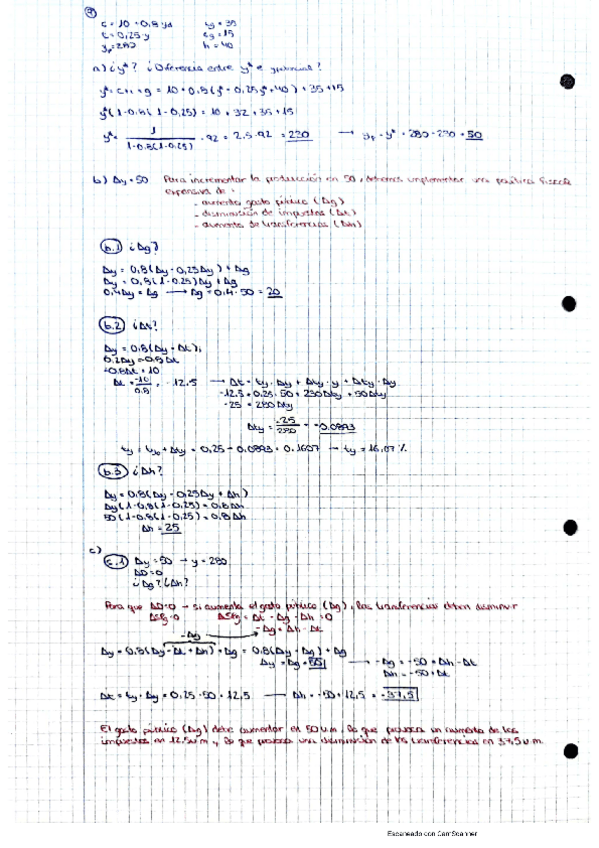 9)
c = 10 + 0,8 yd
t = 0,25 y
yp = 280
h = 40
a) ¿y*? ¿Diferencia entre y* e ypotencial?
y* = c + i + g = 10 + 0,8(y* - 0,25y* + 40) + 35 + 15
y*(1 - 0,8(1 - 0,25)) = 10 + 32 + 35 + 15
y* = 1 / 1-0,8(1-0,25) · 92 = 2,5 · 92 = 230 → yp - y* = 280 - 230 = 50
b) Δy = 50 Para incrementar la producción en 50, debemos implementar una política fiscal
expansiva de:
- aumento gasto público (Δg)
- disminución de impuestos (Δt)
- aumento de transferencias (Δh)
b.1 ¿Δg?
Δy = 0,8(Δy - 0,25Δy) + Δg
Δy = 0,8(1 - 0,25)Δy + Δg
0,4Δy = Δg → Δg = 0,4 · 50 = 20
b.2 ¿Δt?
Δy = 0,8(Δy - Δt);
0,2Δy = -0,8Δt
-0,8Δt = 10
Δt = -10/0,8 = -12,5 → Δt = ty · Δy + Δty · y + Δty · Δy
-12,5 = 0,25 · 50 + 230Δty + 50Δty
-25 = 280Δty
Δty = -25/280 = -0,0893
ty = ty0 + Δty = 0,25 - 0,0893 = 0,1607 → ty = 16,07 %
b.3 ¿Δh?
Δy = 0,8(Δy - 0,25Δy + Δh)
Δy(1 - 0,8(1 - 0,25)) = 0,8Δh
50(1 - 0,8(1 - 0,25)) = 0,8Δh
Δh = 25
c)
c.1 Δy = 50 → y = 280
ΔD = 0
¿Δg? ¿Δh?
Para que ΔD = 0 → si aumenta el gasto público (Δg), las transferencias deben disminuir
= Δt - Δg - Δh = 0
-Δg = Δh - Δt
-Δg
Δy = 0,8(Δy - Δt + Δh) + Δg = 0,8(Δy - Δg) + Δg
Δy = Δg = 50 → -Δg = -50 = Δh - Δt
Δh = -50 + Δt
Δt = ty · Δy = 0,25 · 50 = 12,5 → Δh = -50 + 12,5 = -37,5
El gasto público (Δg) debe aumentar en 50 u.m, lo que provoca un aumento de los
impuestos en 12,5 u.m, lo que provoca una disminución de las transferencias en 37,5 u.m.
Escaneado con CamScanner